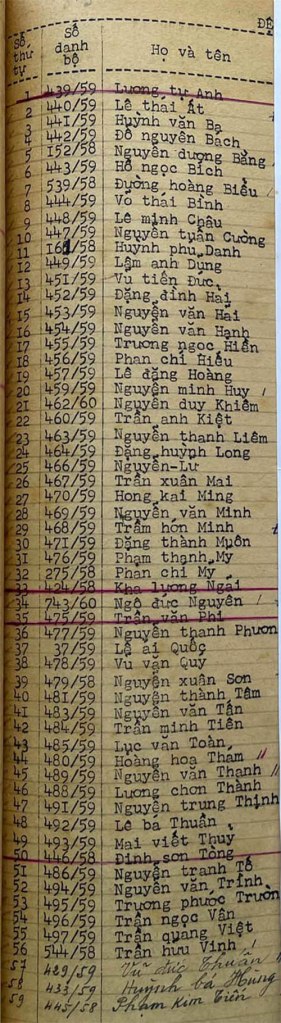 ĐỆ
Số thứ tự Số danh bộ Họ và tên
1 439/59 Lương tự Anh
2 440/59 Lê thái ất
3 441/59 Huỳnh văn Ba
4 442/59 Đỗ nguyên Bách
5 152/58 Nguyễn dương Bằng
6 443/59 Hồ ngọc Bích
7 539/58 Đường hoàng Biểu
8 444/59 Võ thái Bình
9 448/59 Lê minh Châu
10 447/59 Nguyễn tuấn Cường
11 161/58 Huỳnh phú Danh
12 449/59 Lâm anh Dũng
13 451/59 Vũ tiến Đức
14 452/59 Đặng đình Hải
15 453/59 Nguyễn văn Hải
16 454/59 Nguyễn văn Hạnh
17 455/59 Trương ngọc Hiền
18 456/59 Phan chí Hiếu
19 457/59 Lê đăng Hoàng
20 459/59 Nguyễn minh Huy
21 462/60 Nguyễn duy Khiêm
22 460/59 Trần anh Kiệt
23 463/59 Nguyễn thanh Liêm
24 464/59 Đặng huỳnh Long
25 466/59 Nguyễn-Lư
26 467/59 Trần xuân Mai
27 470/59 Hong kai Ming
28 469/59 Nguyễn văn Minh
29 468/59 Trầm hớn Minh
30 471/59 Đặng thành Muôn
31 476/59 Phạm thanh My
32 275/58 Phan chí Mỹ
33 424/58 Kha lương Ngãi
34 743/60 Ngô đức Nguyên
35 475/59 Trần văn Phi
36 477/59 Nguyễn thanh Phươn
37 37/59 Lê ái Quốc
38 478/59 Vũ văn Quý
39 479/58 Nguyễn xuân Sơn
40 481/59 Nguyễn thành Tâm
41 483/59 Nguyễn văn Tấn
42 484/59 Trần minh Tiên
43 485/59 Lục văn Toàn
44 480/59 Hoàng hoa Thám
45 489/59 Nguyễn văn Thạnh
46 488/59 Lương chơn Thành
47 491/59 Nguyễn trung Thịnh
48 492/59 Lê bá Thuần
49 493/59 Mai viết Thụy
50 446/58 Đinh sơn Tòng
51 486/59 Nguyễn tranh Tố
52 494/59 Nguyễn văn Trinh
53 495/59 Trương phước Trườn
54 496/59 Trần ngọc Vân
55 497/59 Trần quang Việt
56 544/58 Trần hữu Vinh
57 489/59 Vũ đức Thuấn
58 433/59 Huỳnh bá Hùng
59 445/58 Phạm kim Tiên